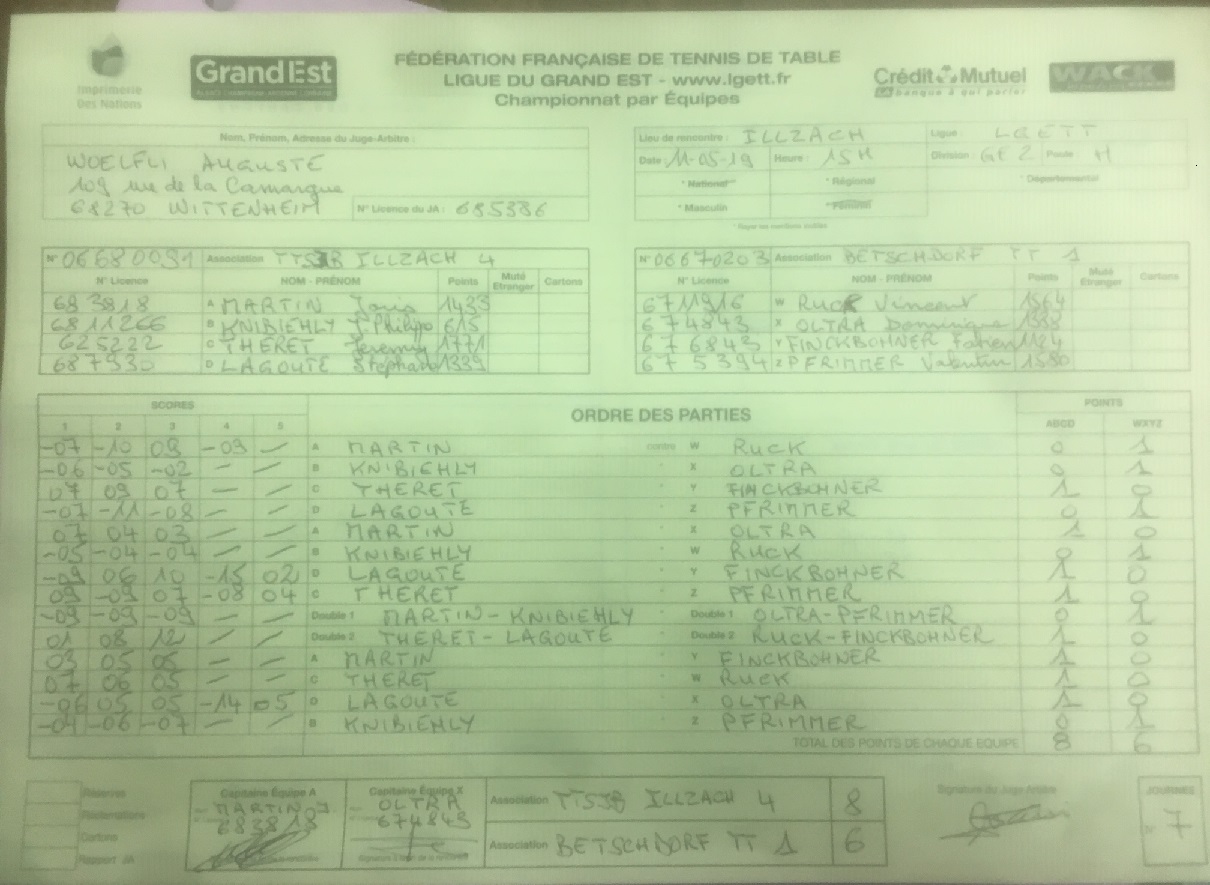 Imprimerie
Des Nations
GrandEst
ALSACE CHAMPAGNE-ARDENNE LORRAINE
FÉDÉRATION FRANÇAISE DE TENNIS DE TABLE
LIGUE DU GRAND EST - www.lgett.fr
Championnat par Équipes
Crédit Mutuel
LA banque à qui parler
WACK
Nom, Prénom, Adresse du Juge-Arbitre :
WOELFLI AUGUSTE
109 rue de la Camargue
68270 WITTENHEIM N° Licence du JA : 685386
Lieu de rencontre : ILLZACH Ligue : LGETT
Date : 11-05-19 Heure : 15H Division : GE 2 Poule : H
* National * Régional * Départemental
* Masculin * Féminin
* Rayer les mentions inutiles
N° 06680091 Association TTSJB ILLZACH 4
N° Licence NOM - PRÉNOM Points Muté Etranger Cartons
683818 A MARTIN Joris 1433
6811266 B KNIBIEHLY J.Philippe 615
625222 C THERET Jeremy 1771
687930 D LAGOUTE Stephane 1339
N° 06670203 Association BETSCHDORF TT 1
N° Licence NOM - PRÉNOM Points Muté Etranger Cartons
6711916 W RUCK Vincent 1564
674843 X OLTRA Dominique
676843 Y FINCKBOHNER Fabien 1124
675394 Z PFRIMMER Valentin 1580
SCORES ORDRE DES PARTIES POINTS
1 2 3 4 5 ABCD WXYZ
-07 -10 09 -03 — A MARTIN contre W RUCK 0 1
-06 -05 -02 — — B KNIBIEHLY " X OLTRA 0 1
07 09 07 — — C THERET " Y FINCKBOHNER 1 0
-07 -11 -08 — — D LAGOUTE " Z PFRIMMER 0 1
07 04 03 — — A MARTIN " X OLTRA 1 0
-05 -04 -04 — — B KNIBIEHLY " W RUCK 0 1
-09 06 10 -15 02 D LAGOUTE " Y FINCKBOHNER 1 0
09 -09 07 -08 04 C THERET " Z PFRIMMER 1 0
-09 -09 -09 — — Double 1 MARTIN - KNIBIEHLY " Double 1 OLTRA-PFRIMMER 0 1
01 08 12 — — Double 2 THERET - LAGOUTE " Double 2 RUCK-FINCKBOHNER 1 0
03 05 05 — — A MARTIN " Y FINCKBOHNER 1 0
07 06 05 — — C THERET " W RUCK 1 0
-06 05 05 -14 05 D LAGOUTE " X OLTRA 1 0
-04 -06 -07 — — B KNIBIEHLY " Z PFRIMMER 0 1
TOTAL DES POINTS DE CHAQUE EQUIPE 8 6
Réserves
Réclamations
Cartons
Rapport JA
Capitaine Équipe A
- MARTIN J
683818
Capitaine Équipe X
- OLTRA
674843
Association TTSJB ILLZACH 4 8
Association BETSCHDORF TT 1 6
Signature du Juge Arbitre
JOURNÉE
N° 7